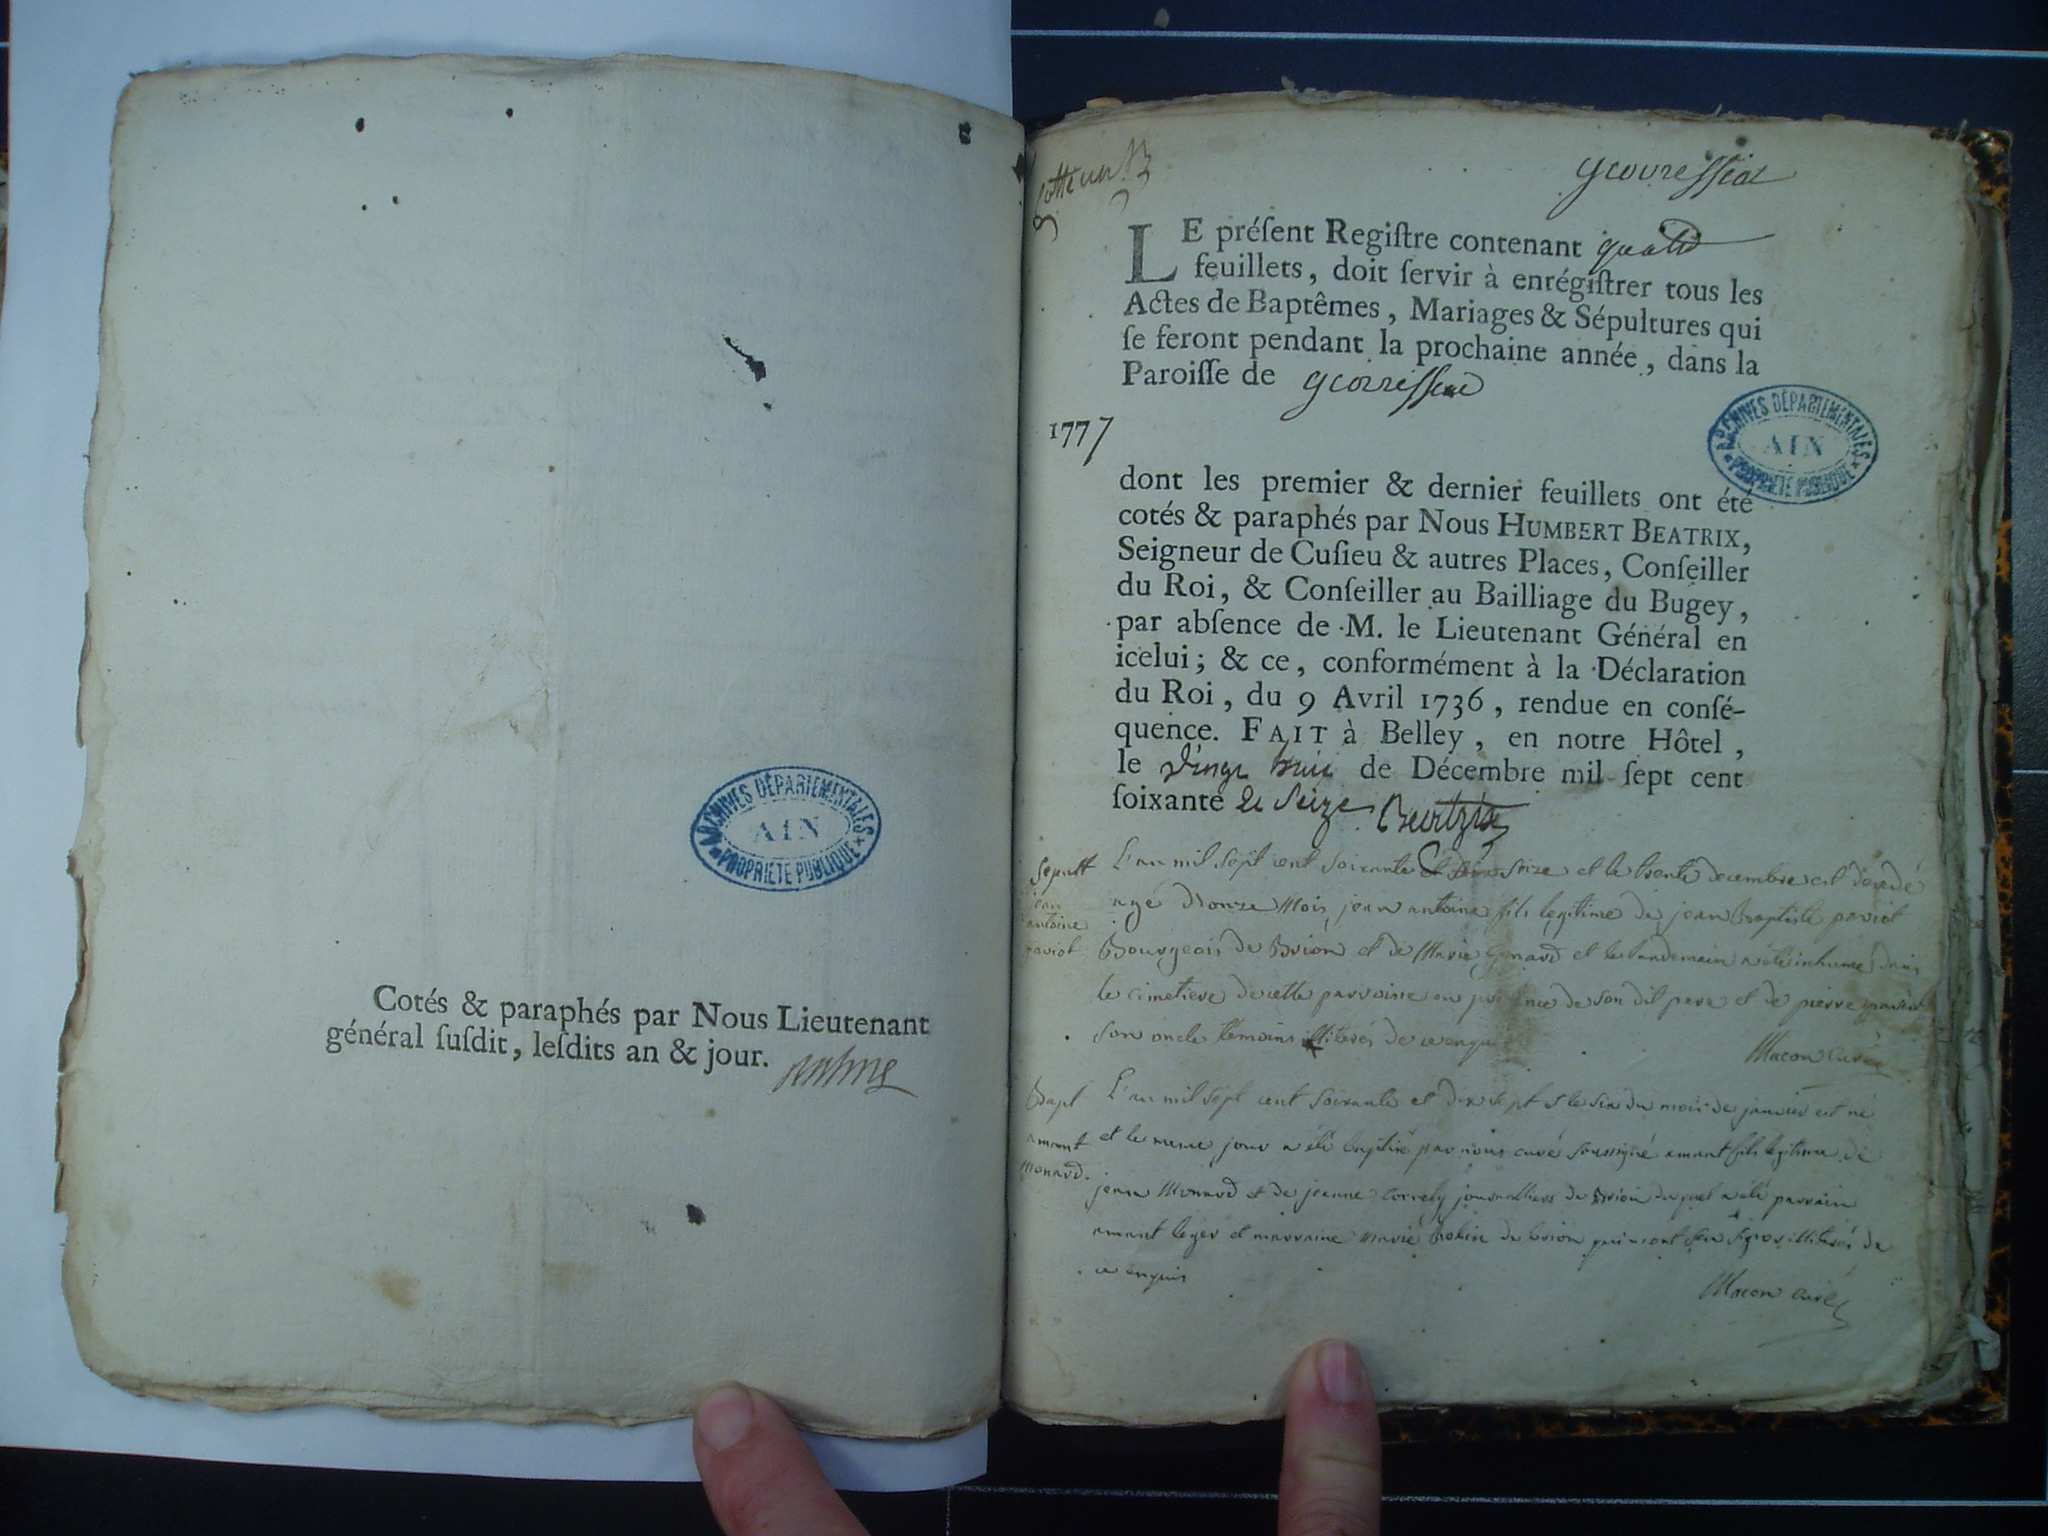 ARCHIVES DÉPARTEMENTALES
AIN
PROPRIÉTÉ PUBLIQUE
Cotés & paraphés par Nous Lieutenant
général ſuſdit, leſdits an & jour.
LE préſent Regiſtre contenant quatre
feuillets, doit ſervir à enrégiſtrer tous les
Actes de Baptêmes, Mariages & Sépultures qui
ſe feront pendant la prochaine année, dans la
Paroiſſe de
1777
ARCHIVES DÉPARTEMENTALES
AIN
PROPRIÉTÉ PUBLIQUE
dont les premier & dernier feuillets ont été
cotés & paraphés par Nous HUMBERT BEATRIX,
Seigneur de Cuſieu & autres Places, Conſeiller
du Roi, & Conſeiller au Bailliage du Bugey,
par abſence de M. le Lieutenant Général en
icelui; & ce, conformément à la Déclaration
du Roi, du 9 Avril 1736, rendue en conſé-
quence. FAIT à Belley, en notre Hôtel,
le vingt huit de Décembre mil ſept cent
ſoixante et seize Beatrix
Sepult L'an mil sept cent soixante et seize et le trente decembre est decedé
antoine agé d'onze mois jean antoine fils legitime de jean baptiste paviot
paviot Bourgeois de Brion et de Marie et le landemain a été inhumé dans
le cimetiere de cette parroisse en presence de son dit pere et de pierre
son oncle temoins illiterés de ce enquis
Macon curé
Bapt L'an mil sept cent soixante et dix sept et le six du mois de janvier est né
amant et le meme jour a été baptisé par nous curé soussigné amant fils legitime de
Monard. jean Monard et de jeanne journalliers de Brion duquel a été parrain
amant leger et marraine marie de brion qui n'ont sçu signer illiterés de
ce enquis
Macon curé